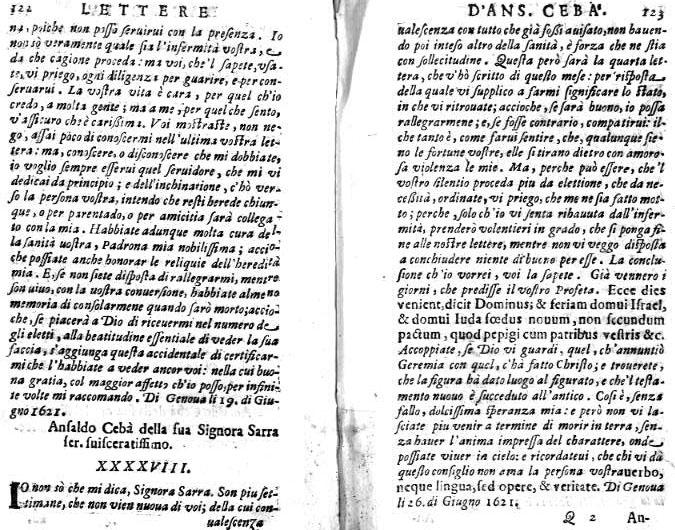 322 LETTERE
no, poiche non posso seruirui con la presenza. Io
non sò veramente quale sia l'infermità vostra, e
da che cagione proceda: ma voi, che'l sapete, vsa-
te, vi priego, ogni diligenza per guarire, e per con-
seruarui. La vostra vita è cara, per quel ch'io
credo, a molta gente; ma a me, per quel che sento,
v'assicuro che è carissima. Voi mostraste, non ne-
go, assai poco di conoscermi nell'vltima vostra let-
tera: ma, conoscere, o disconoscere che mi dobbiate,
io voglio sempre esserui quel seruidore, che mi vi
dedicai da principio; e dell'inchinatione, c'hò ver-
so la persona vostra, intendo che resti herede chiun-
que, o per parentado, o per amicitia sarà collega-
to con la mia. Habbiate adunque molta cura del-
la sanità uostra, Padrona mia nobilissima; accio-
che possiate anche honorar le reliquie dell'heredità
mia. E, se non siete disposta di rallegrarmi, mentre
son uiuo, con la vostra conuersione, habbiate almeno
memoria di consolarmene quando sarò morto; accio-
che, se piacerà a Dio di riceuermi nel numero de
gli eletti, alla beatitudine essentiale di veder la sua
faccia, s'aggiunga questa accidentale di certificar-
mi che l'habbiate a veder ancor voi: nella cui buo-
na gratia, col maggior affetto ch'io posso, per infini-
te volte mi raccomando. Di Genoua li 19. di Giu-
gno 1621.
Ansaldo Cebà della sua Signora Sarra
ser. suisceratissimo.
XXXXVIII.
IO non sò che mi dica, Signora Sarra. Son piu set-
timane, che non vien nuoua di voi; della cui con-
ualescenza
D'ANS. CEBA'. 123
ualescenza con tutto che già fossi auisato, non hauen-
do poi inteso altro della sanità, è forza che ne stia
con sollecitudine. Questa però sarà la quarta let-
tera, che v'hò scritto di questo mese: per risposta
della quale vi supplico a farmi significare lo stato,
in che vi ritrouate; accioche, se sarà buono, io possa
rallegrarmene; e, se fosse contrario, compatirui: il-
che tanto è, come farui sentire, che, qualunque sie-
no le fortune vostre, elle si tirano dietro con amoro-
sa violenza le mie. Ma, perche può essere, che'l
vostro silentio proceda piu da elettione, che da ne-
cessità, ordinate, vi priego, che me ne sia fatto mot-
to; perche, solo ch'io vi senta rihauuta dall'infer-
mità, prenderò volentieri in grado, che si ponga fi-
ne alle nostre lettere, mentre non vi veggo disposta
a conchiudere niente di buono per esse. La conclu-
sione ch'io vorrei, voi la sapete. Già vennero i
giorni, che predisse il vostro Profeta. Ecce dies
venient, dicit Dominus; & feriam domui Israel,
& domui Iuda fœdus nouum, non secundum
pactum, quod pepigi cum patribus vestris &c.
Accoppiate, se Dio vi guardi, quel, ch'annuntiò
Geremia con quel, c'hà fatto Christo; e trouerete,
che la figura hà dato luogo al figurato, e che'l testa-
mento nuouo è succeduto all'antico. Cosi è, senza
fallo, dolcissima speranza mia: e però non vi la-
sciate piu venire a termine di morir in terra, sen-
za hauer l'anima impressa del charattere, onde
possiate viuer in cielo: e ricordateui, che chi vi dà
questo consiglio non ama la persona vostra uerbo,
neque lingua, sed opere, & veritate. Di Genoua
li 26. di Giugno 1621.
Q 2 An-